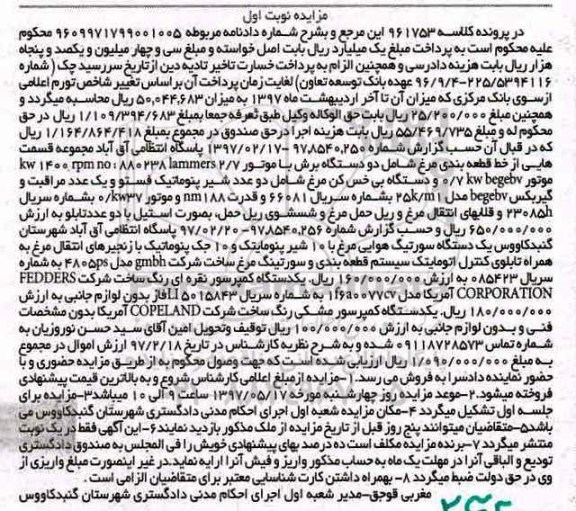 مزایده نوبت اول
در پرونده کلاسه ۹۶۱۷۵۳ این مرجع و بشرح شماره دادنامه مربوطه ۹۶۰۹۹۷۱۷۹۹۰۰۱۰۰۵ محکوم
علیه محکوم است به پرداخت مبلغ یک میلیارد ریال بابت اصل خواسته و مبلغ سی و چهار میلیون و یکصد و پنجاه
هزار ریال بابت هزینه دادرسی و همچنین الزام به پرداخت خسارت تاخیر تادیه دین از تاریخ سررسید چک ( شماره
۲۲۵/۵۳۹۴۱۱۶-۹۶/۹/۴ عهده بانک توسعه تعاون) لغایت زمان پرداخت آن بر اساس تغییر شاخص تورم اعلامی
ازسوی بانک مرکزی که میزان آن تا آخر اردیبهشت ماه ۱۳۹۷ به میزان ۵۰,۰۴۴,۶۸۳ ریال محاسبه میگردد و
همچنین مبلغ ۲۵/۲۰۰/۰۰۰ ریال بابت حق الوکاله وکیل طبق تعرفه جمعا بمبلغ ۱/۱۰۹/۳۹۴/۶۸۳ ریال در حق
محکوم له و مبلغ ۵۵/۴۶۹/۷۳۵ ریال بابت هزینه اجرا درحق صندوق در مجموع بمبلغ ۱/۱۶۴/۸۶۴/۴۱۸ ریال
که در قبال آن حسب گزارش شماره ۹۷۸۵۴۰,۲۵۰-۱۳۹۷/۰۲/۱۷ پاسگاه انتظامی آق آباد مجموعه قسمت
هایی از خط قطعه بندی مرغ شامل دو دستگاه برش با موتور lammers ۲/۷ ۸۸۰۲۳۸ : kw ۱۴۰۰ rpm no
موتور ۰/۷ kw begebv و دستگاه بی خس کن مرغ شامل دو عدد شیر پنوماتیک فستو و یک عدد مراقبت و
گیربکس begebv مدل ۲۵k/m۱ بشماره سریال ۶۶۰۸۱ و قدرت nm۱۸۸ و موتور ۰/kw۳۷ بشماره سریال
۲۳۰۸۵h و قللهای انتقال مرغ و ریل حمل مرغ و شسشوی ریل حمل، بصورت استیل با دو عددتابلو به ارزش
۶۵۰/۰۰۰/۰۰۰ ریال و حسب گزارش شماره ۹۷۸۵۴۰,۲۵۶-۹۷/۰۲/۲۰ پاسگاه انتظامی آق آباد شهرستان
گنبدکاووس یک دستگاه سورتیگ هوایی مرغ با ۱۰ شیر پنوماتیک و ۱۰ جک پنوماتیک با زنجیرهای انتقال مرغ به
همراه تابلوی کنترل اتوماتیک سیستم قطعه بندی و سورتینگ مرغ ساخت شرکت gmbh مدل ۴۸۰۵ps به شماره
سریال ۰۸۵۴۲۳ به ارزش ۱۶۰/۰۰۰/۰۰۰ ریال. یکدستگاه کمپرسور نقره ای رنگ ساخت شرکت FEDDERS
CORPORATION آمریکا مدل ۱f۶۵۰۰۷۷cv به شماره سریال LI۵۰۱۵۸۴۳ فاز بدون لوازم جانبی به ارزش
۱۸۰/۰۰۰/۰۰۰ ریال. یکدستگاه کمپرسور مشکی رنگ ساخت شرکت COPELAND آمریکا بدون مشخصات
فنی و بدون لوازم جانبی به ارزش ۱۰۰/۰۰۰/۰۰۰ ریال توقیف وتحویل امین آقای سید حسن نوروزیان به
شماره تماس ۰۹۱۱۸۷۲۸۵۷۳ شده و به شرح نظریه کارشناس در تاریخ ۹۷/۲/۱۸ ارزش اموال در مجموع
به مبلغ ۱/۰۹۰/۰۰۰/۰۰۰ ریال ارزیابی شده است که جهت وصول محکوم به از طریق مزایده حضوری و با
حضور نماینده دادسرا به فروش می رسد. ۱-مزایده ازمبلغ اعلامی کارشناس شروع و به بالاترین قیمت پیشنهادی
فروخته میشود.۲-موعد مزایده روز چهارشنبه مورخه ۱۳۹۷/۰۵/۱۷ ساعت ۹ الی ۱۰ میباشد۳-مزایده برای
جلسه اول تشکیل میگردد ۴-مکان مزایده شعبه اول اجرای احکام مدنی دادگستری شهرستان گنبدکاووس می
باشد۵-متقاضیان میتوانند پنج روز قبل از تاریخ مزایده از ملک مذکور بازدید نمایند۶-این آگهی فقط در یک نوبت
منتشر میگردد ۷-برنده مزایده مکلف است ده درصد بهای پیشنهادی خویش را فی المجلس به صندوق دادگستری
تودیع و الباقی آنرا در مهلت یک ماه به حساب مذکور واریز و فیش آنرا ارایه نماید.در غیر اینصورت مبلغ واریزی از
وی در حق دولت ضبط میگردد ۸- بهمراه داشتن کارت شناسایی معتبر برای متقاضیان الزامی است .
مغربی قوجق-مدیر شعبه اول اجرای احکام مدنی دادگستری شهرستان گنبدکاووس